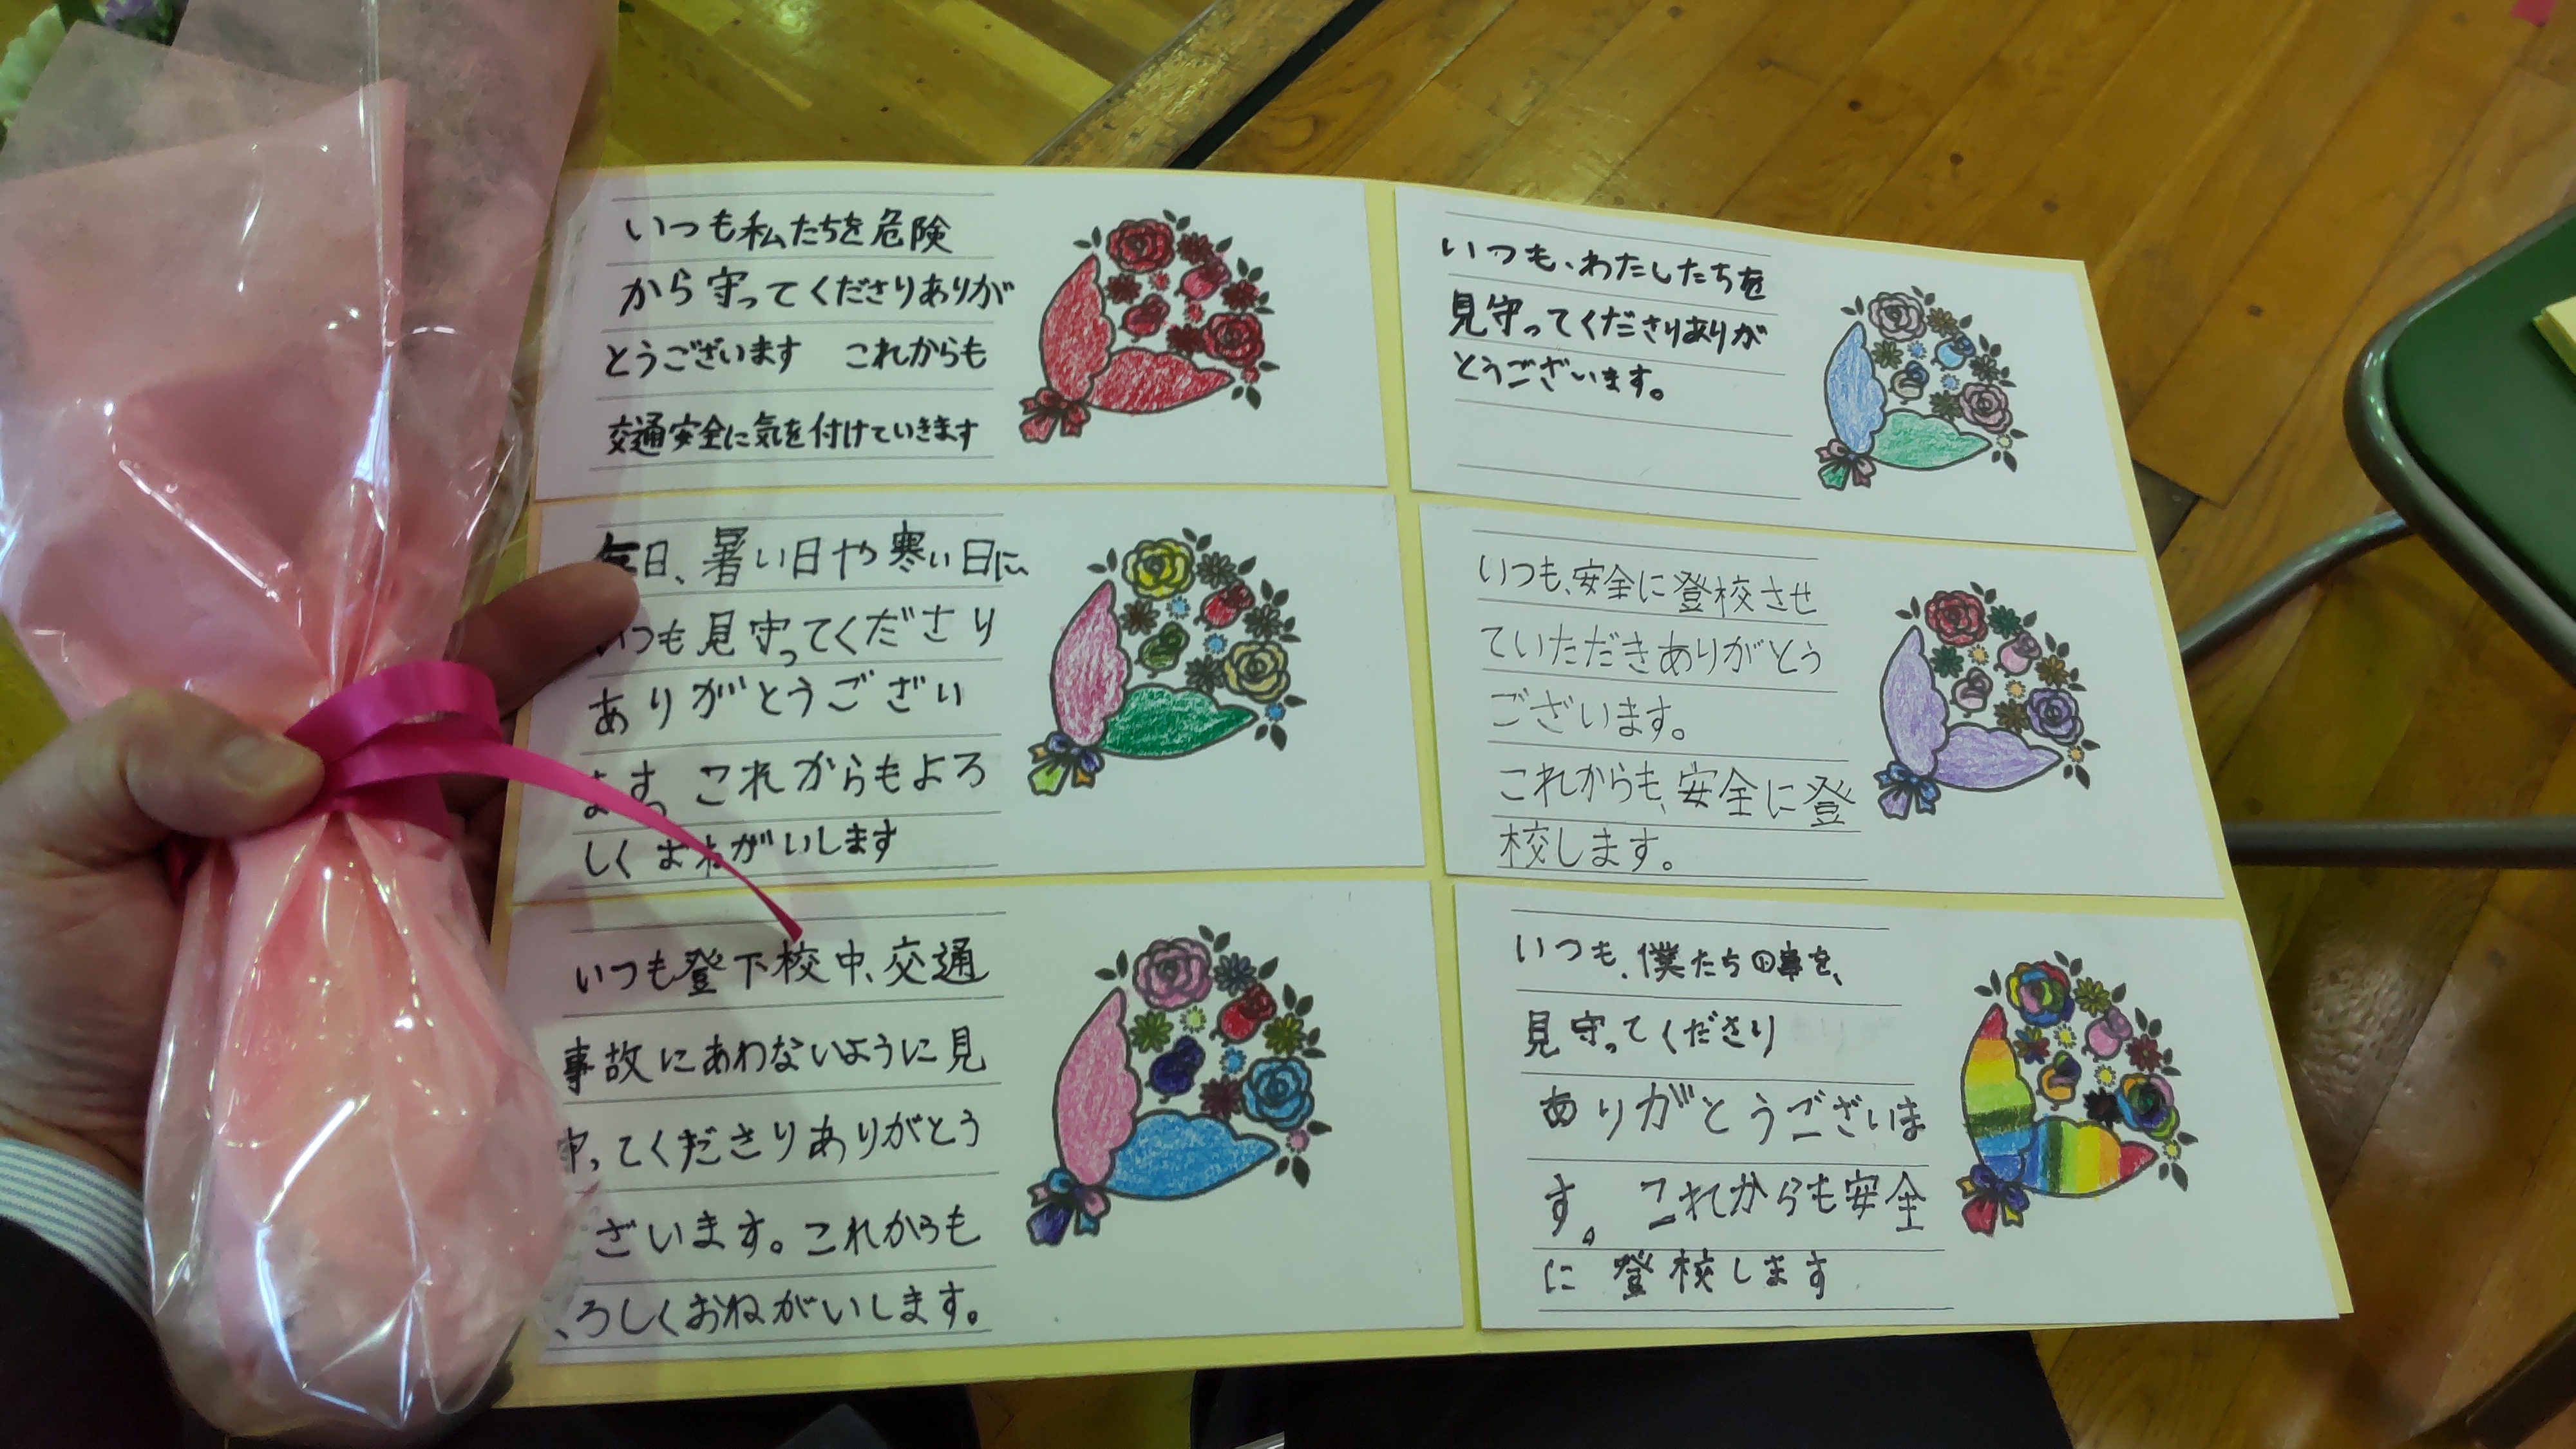 いつも私たちを危険
から守ってくださりありが
とうございます これからも
交通安全に気を付けていきます
毎日、暑い日や寒い日に
いつも見守ってくださり
ありがとうござい
ます。これからもよろ
しくおねがいします
いつも登下校中、交通
事故にあわないように見
守ってくださりありがとう
ざいます。これからも
ろしくおねがいします。
いつも、わたしたちを
見守ってくださりありが
とうございます。
いつも、安全に登校させ
ていただきありがとう
ございます。
これからも、安全に登
校します。
いつも、僕たちの事を、
見守ってくださり
ありがとうございま
す。これからも安全
に登校します